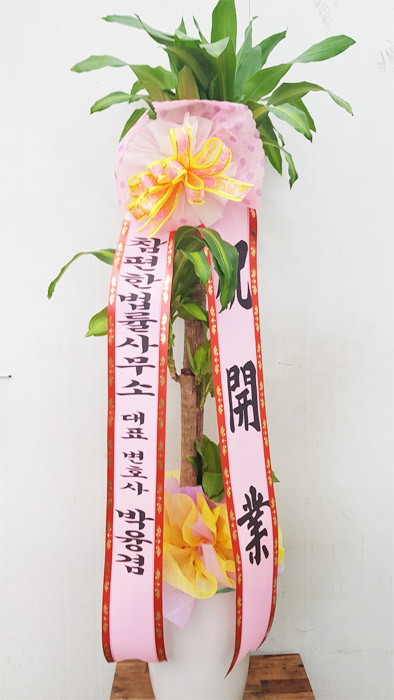 참편한법률사무소 대표 변호사 박웅겸
祝開業